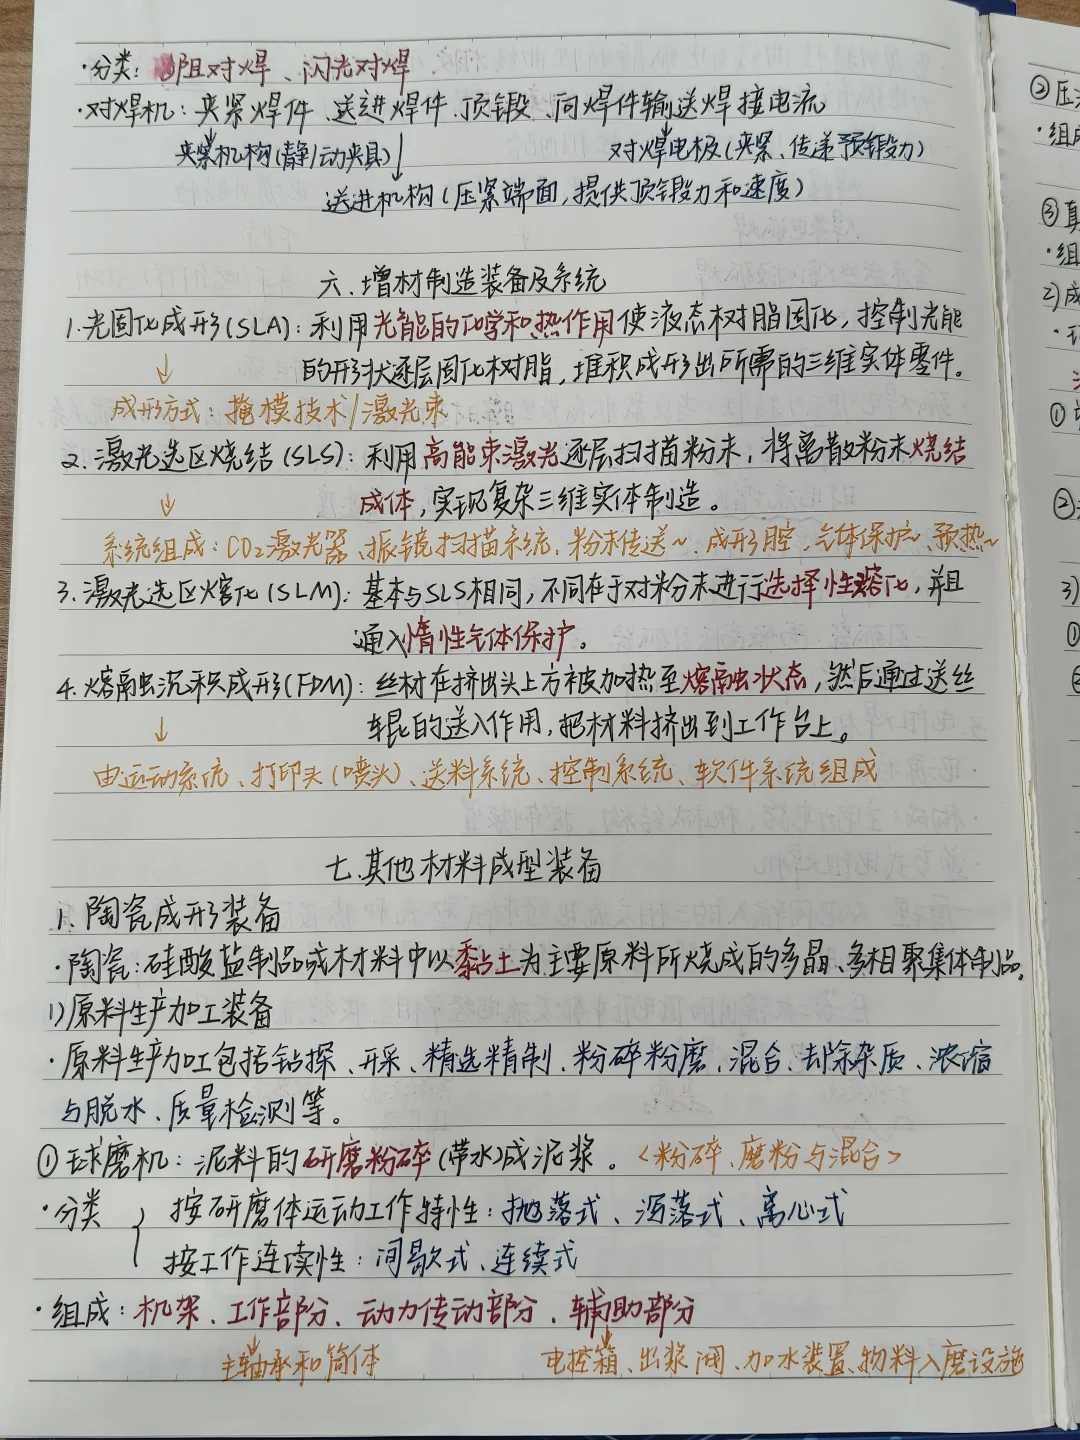 ·分类：电阻对焊、闪光对焊
·对焊机：夹紧焊件、送进焊件、顶锻、向焊件输送焊接电流
夹紧机构(静/动夹具) 对焊电极(夹紧、传递预锻力)
送进机构(压紧端面,提供顶锻力和速度)
六.增材制造装备及系统
1.光固化成形(SLA)：利用光能的化学和热作用使液态树脂固化，控制光能
的形状逐层固化树脂，堆积成形出所需的三维实体零件。
成形方式：掩模技术/激光束
2.激光选区烧结(SLS)：利用高能束激光逐层扫描粉末，将离散粉末烧结
成体，实现复杂三维实体制造。
系统组成：CO₂激光器、振镜扫描系统、粉末传送~、成形腔、气体保护~、预热~
3.激光选区熔化(SLM)：基本与SLS相同，不同在于对粉末进行选择性熔化，并且
通入惰性气体保护。
4.熔融沉积成形(FDM)：丝材在挤出头上方被加热至熔融状态，然后通过送丝
辊的送入作用，把材料挤出到工作台上。
由运动系统、打印头(喷头)、送料系统、控制系统、软件系统组成
七.其他材料成型装备
1.陶瓷成形装备
·陶瓷：硅酸盐制品或材料中以黏土为主要原料所烧成的多晶、多相聚集体制品。
1)原料生产加工装备
·原料生产加工包括钻探、开采、精选精制、粉碎粉磨、混合、去除杂质、浓缩
与脱水、质量检测等。
①球磨机：泥料的研磨粉碎(带水)成泥浆。<粉碎、磨粉与混合>
·分类 按研磨体运动工作特性：抛落式、泻落式、离心式
按工作连续性：间歇式、连续式
·组成：机架、工作部分、动力传动部分、辅助部分
主轴承和筒体 电控箱、出浆阀、加水装置、物料入磨设施
②压
·组成
③真
·组
2)成
①
②
3)
①